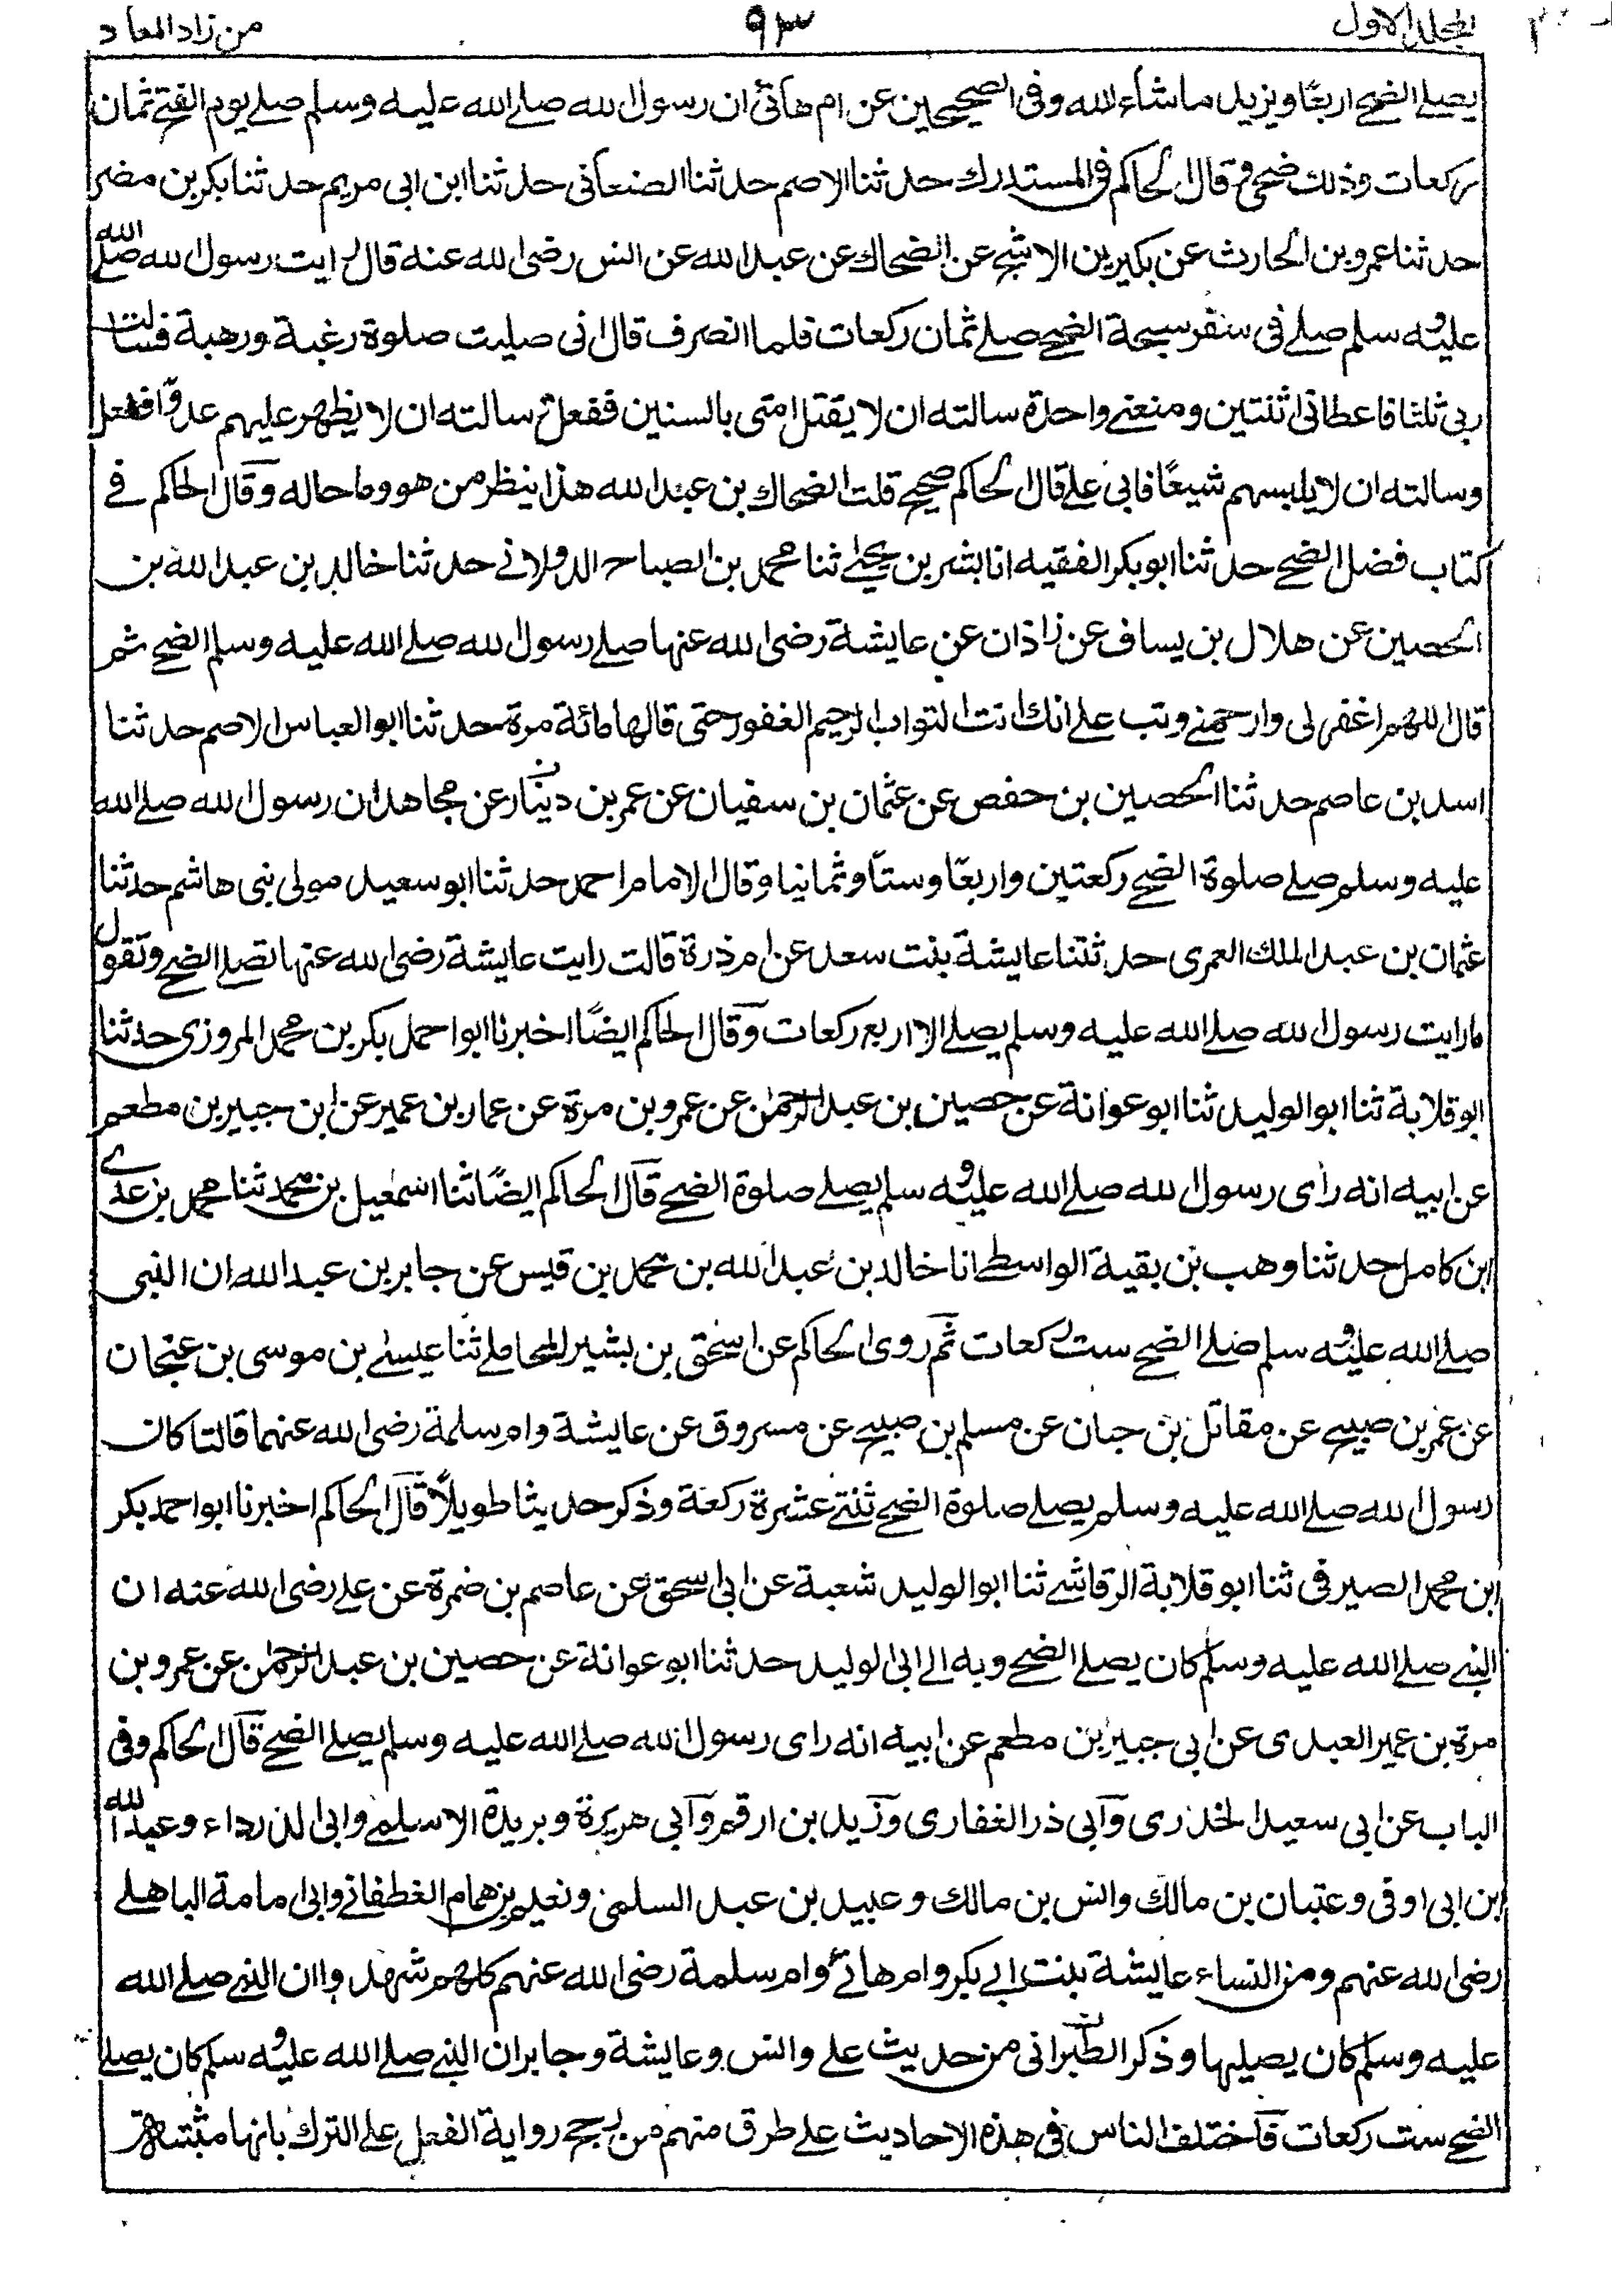 المجلد الاول ٩٣ من زاد المعاد
يصلے الضحے اربعًا ويزيد ماشاء الله وفى الصحيحين عن ام هانئ ان رسول الله صلے الله عليه وسلم صلے يوم الفتح ثمان
ركعات وذلك ضحى وقال الحاكم فى المستدرك حدثنا الاصم حدثنا الصنعانى حدثنا ابن ابى مريم حدثنا بكر بن مضر
حدثنا عمرو بن الحارث عن بكير بن الاشج عن الضحاك عن عبد الله عن انس رضى الله عنه قال رايت رسول الله صلے الله
عليه وسلم صلے فى سفر سبحة الضحے صلے ثمان ركعات فلما انصرف قال انى صليت صلوة رغبة ورهبة فسالت
ربى ثلثا فاعطانى اثنتين ومنعنے واحدة سالته ان لا يقتل امتى بالسنين ففعل ثم سالته ان لا يظهر عليهم عدوّا ففعل
وسالته ان لا يلبسهم شيعًا فابى علے قال الحاكم صحيح قلت الضحاك بن عبد الله هذا ينظر من هو وما حاله وقال الحاكم فے
كتاب فضل الضحے حدثنا ابو بكر الفقيه انا بشر بن يحيٰے ثنا محمد بن الصباح الدولانے حدثنا خالد بن عبد الله بن
الحصين عن هلال بن يساف عن زاذان عن عايشة رضى الله عنها صلے رسول الله صلے الله عليه وسلم الضحے ثم
قال اللهم اغفر لى وارحمنے وتب علے انك انت التواب الرحيم الغفور حتى قالها مائة مرة حدثنا ابو العباس الاصم حدثنا
اسد بن عاصم حدثنا الحصين بن حفص عن عثمان بن سفيان عن عمر بن دينار عن مجاهد ان رسول الله صلے الله
عليه وسلم صلے صلوة الضحے ركعتين واربعًا وستّا وثمانيا وقال الامام احمد حدثنا ابو سعيد مولى بنى هاشم حدثنا
عثمان بن عبد الملك العمرى حدثتنا عايشة بنت سعد عن ام ذرة قالت رايت عايشة رضى الله عنها تصلے الضحے وتقول
ما رايت رسول الله صلے الله عليه وسلم يصلے الا اربع ركعات وقال الحاكم ايضًا اخبرنا ابو احمد بكر بن محمد المروزى حدثنا
ابو قلابة ثنا ابو الوليد ثنا ابو عوانة عن حصين بن عبد الرحمٰن عن عمرو بن مرة عن عمار بن عمير عن ابن جبير بن مطعم
عن ابيه انه راى رسول الله صلے الله عليه وسلم يصلے صلوة الضحے قال الحاكم ايضًا ثنا اسمٰعيل بن محمد ثنا محمد بن عدے
ابن كامل حدثنا وهب بن بقية الواسطے انا خالد بن عبد الله بن محمد بن قيس عن جابر بن عبد الله ان النبى
صلے الله عليه وسلم صلے الضحے ست ركعات ثم روى الحاكم عن اسحٰق بن بشير المحاملے ثنا عيسٰے بن موسى بن عنجان
عن عمر بن صبيح عن مقاتل بن حبان عن مسلم بن صبيح عن مسروق عن عايشة وام سلمة رضى الله عنهما قالتا كان
رسول الله صلے الله عليه وسلم يصلے صلوة الضحے ثنتے عشرة ركعة وذكر حديثا طويلًا قال الحاكم اخبرنا ابو احمد بكر
ابن محمد الصيرفى ثنا ابو قلابة الرقاشے ثنا ابو الوليد شعبة عن ابى اسحٰق عن عاصم بن ضمرة عن علے رضى الله عنه ان
النبے صلے الله عليه وسلم كان يصلے الضحے وبه الے ابى الوليد حدثنا ابو عوانة عن حصين بن عبد الرحمٰن عن عمرو بن
مرة بن عمير العبدى عن ابى جبير بن مطعم عن ابيه انه راى رسول الله صلے الله عليه وسلم يصلے الضحے قال الحاكم وفى
الباب عن ابى سعيد الخدرى وابى ذر الغفارى وزيد بن ارقم وابى هريرة وبريدة الاسلمے وابى الدرداء وعبد الله
ابن ابى اوفى وعتبان بن مالك وانس بن مالك وعبيد بن عبد السلمى ونعيم بن همام الغطفانے وابى امامة الباهلے
رضى الله عنهم ومن النساء عايشة بنت ابے بكر وام هانئ وام سلمة رضى الله عنهم كلهم شهدوا ان النبے صلے الله
عليه وسلم كان يصليها وذكر الطبرانى من حديث علے وانس وعايشة وجابر ان النبے صلے الله عليه وسلم كان يصلے
الضحے ست ركعات فاختلف الناس فى هذه الاحاديث علے طرق منهم من رجح رواية الفعل علے الترك بانها مثبتة